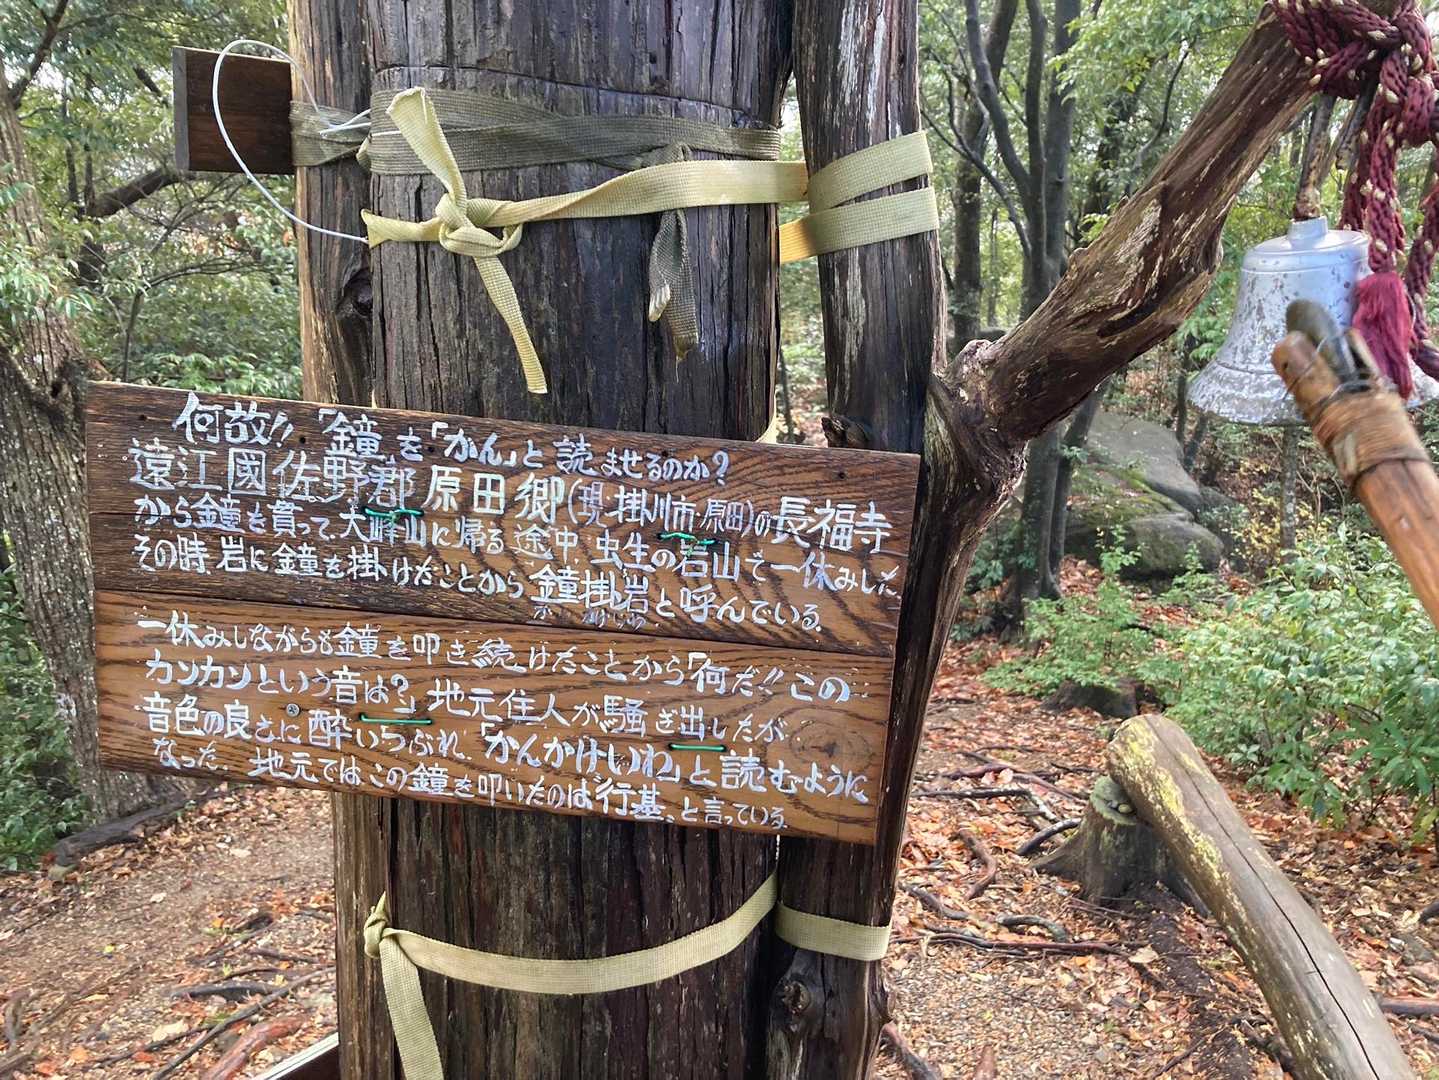 何故!!「鐘」を「かん」と読ませるのか?
遠江國佐野郡原田郷(現・掛川市・原田)の長福寺
から鐘を貰って、大峰山に帰る途中、虫生の岩山で一休みした
その時岩に鐘を掛けたことから鐘掛岩と呼んでいる。
一休みしながらも鐘を叩き続けたことから「何だ!!この
カンカンという音は?」地元住人が騒ぎ出したが
音色の良さに酔いつぶれ、「かんかけいわ」と読むように
なった。地元ではこの鐘を叩いたのは"行基"と言っている。